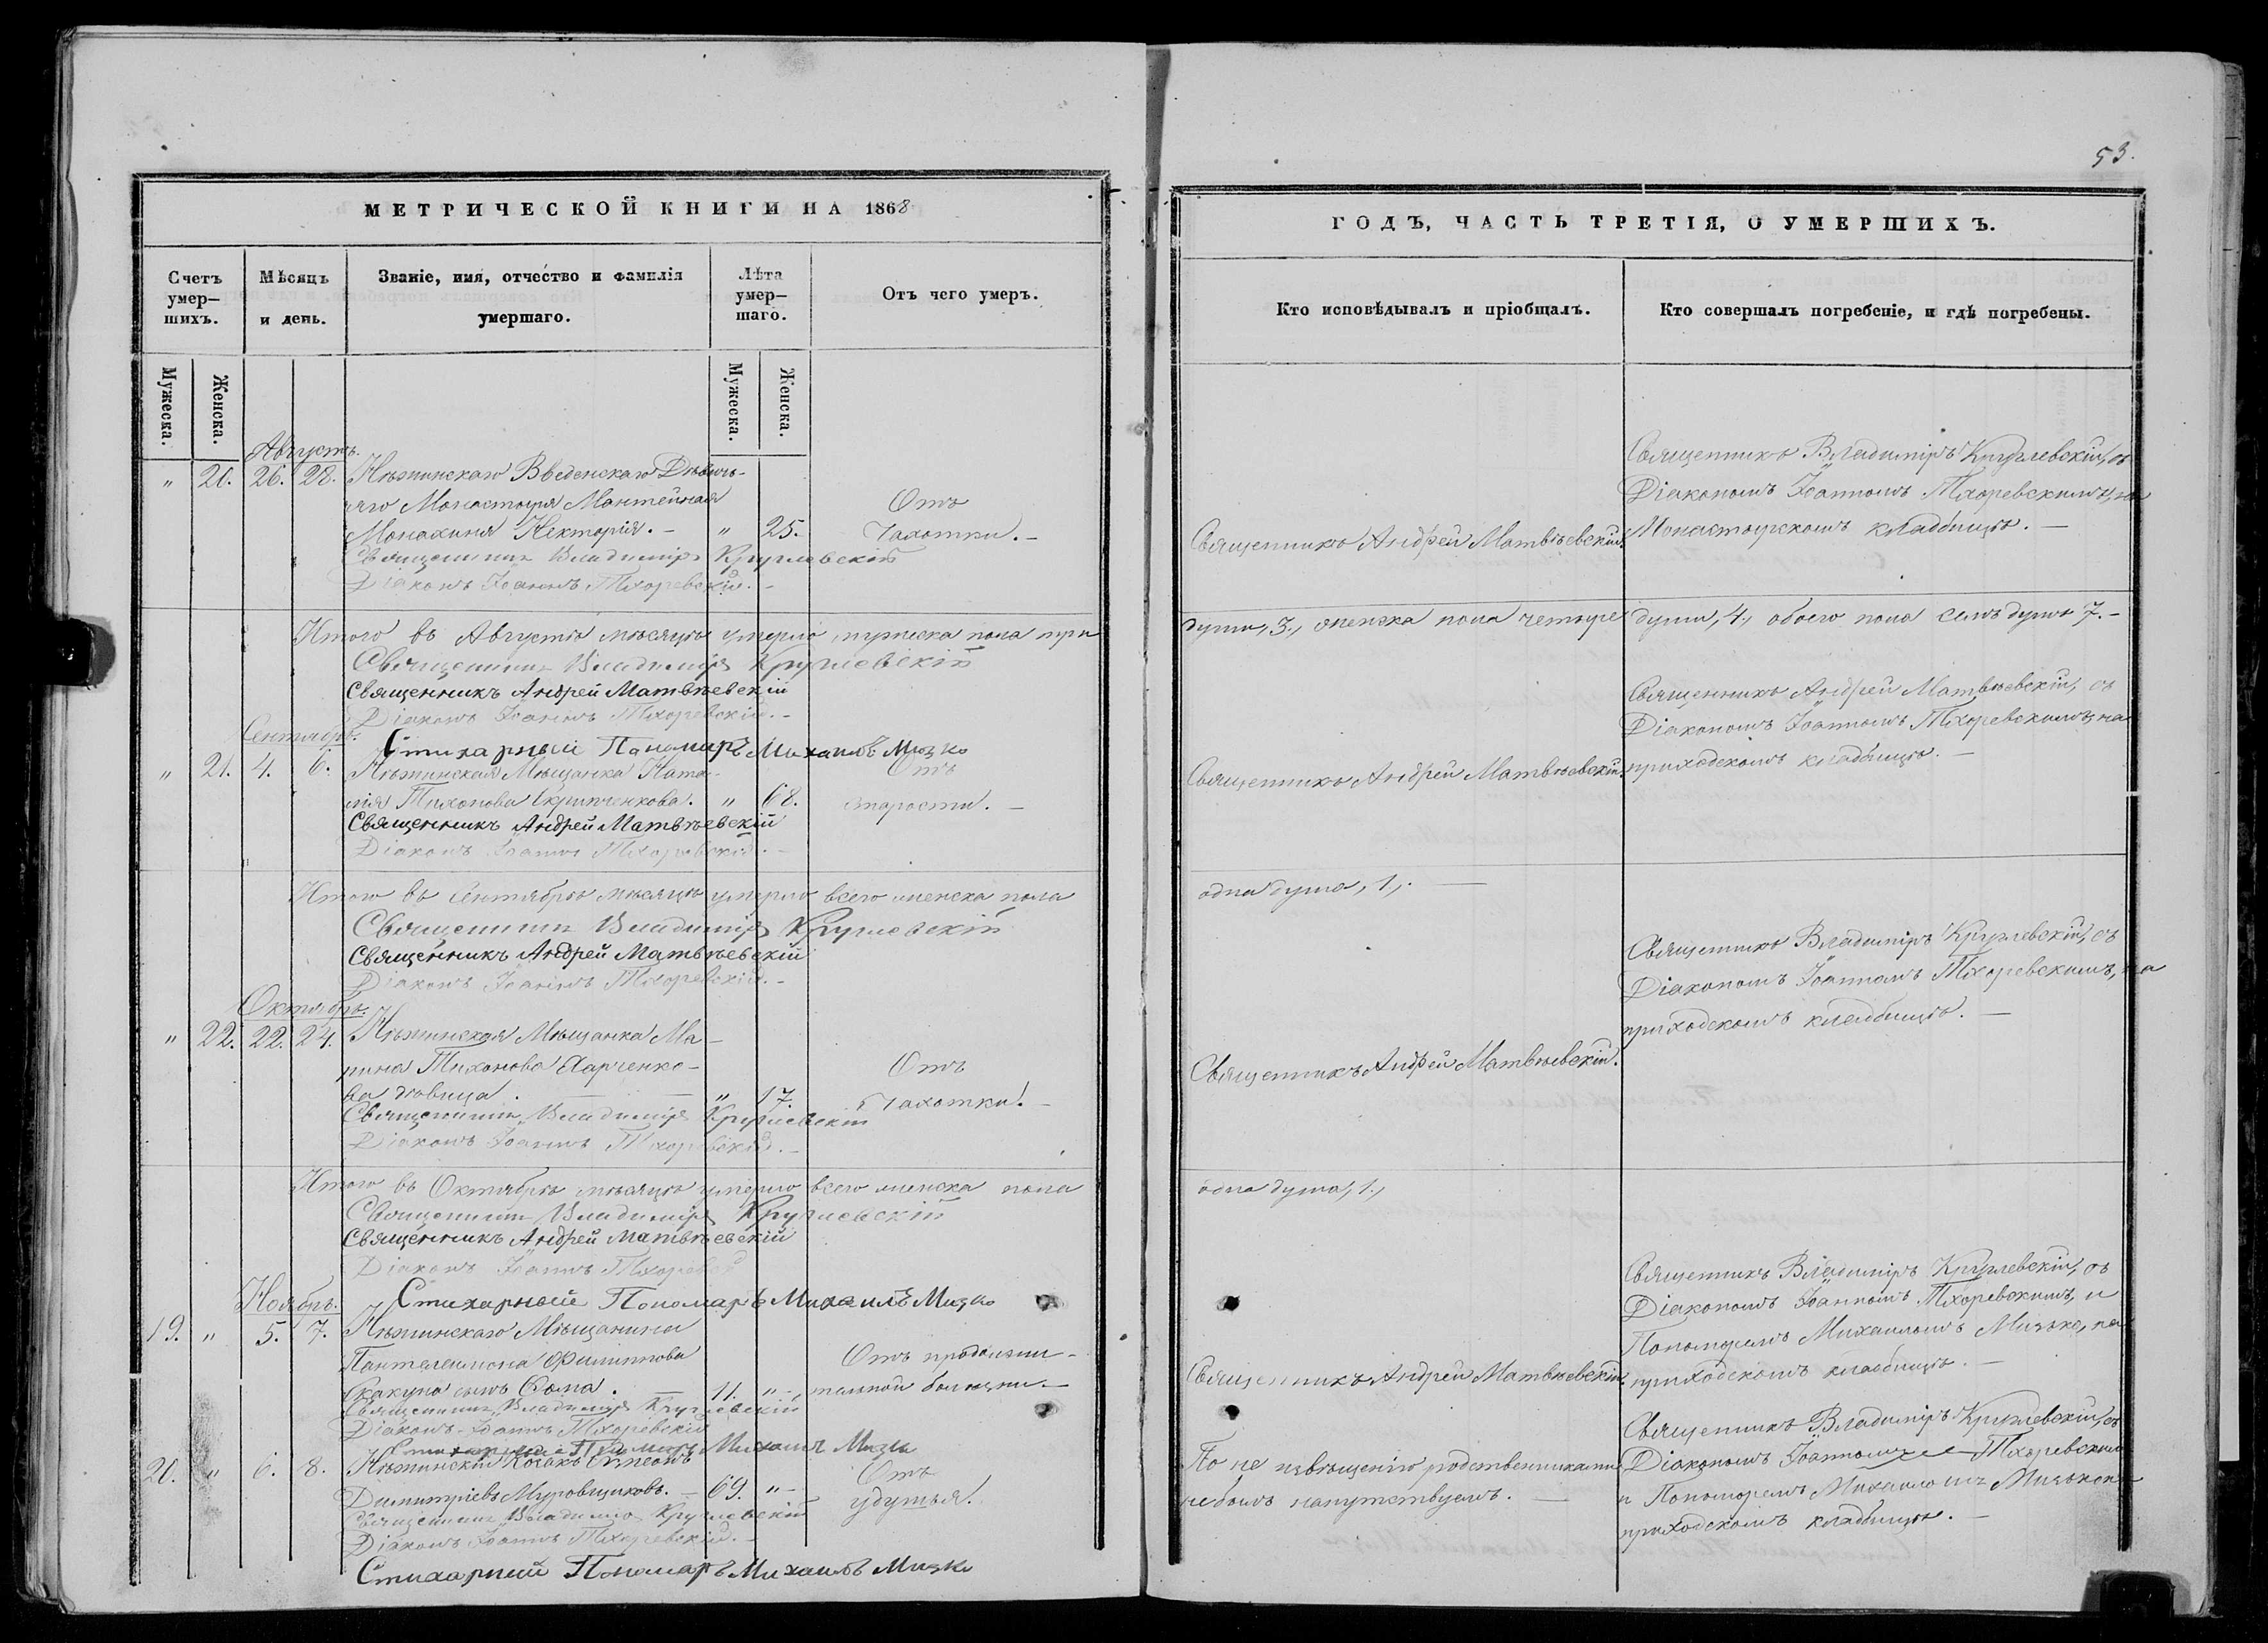 53.
МЕТРИЧЕСКОЙ КНИГИ НА 1868
ГОДЪ, ЧАСТЬ ТРЕТІЯ, О УМЕРШИХЪ.
Счетъ умер–шихъ.
Мѣсяцъ и день.
Званіе, имя, отчество и фамилія умершаго.
Лѣта умер–шаго.
Отъ чего умеръ.
Кто исповѣдывалъ и пріобщалъ.
Кто совершалъ погребеніе, и гдѣ погребены.
Мужеска.
Женска.
Мужеска.
Женска.
Августъ.
" 21. 26. 28. Нѣжинскаго Введенскаго Дѣвичь-
яго Монастыря Мантейная
Монахиня Нектарія. – " 25.
Отъ
Чахотки. –
Священникъ Андрей Матвѣевскій.
Священникъ Владиміръ Круглевскій, съ
Діакономъ Іоанномъ Тхоревскимъ, на
Монастырскомъ кладбищѣ. –
Священникъ Владиміръ Круглевскій
Діаконъ Іоаннъ Тхоревскій. –
Итого въ Августѣ мѣсяцѣ умерло мужеска пола три
души, 3., женска пола четыре души, 4., обоего пола семь душъ 7. –
Священникъ Владиміръ Круглевскій
Священникъ Андрей Матвѣевскій
Діаконъ Іоаннъ Тхоревскій. –
Стихарный Пономаръ Михаилъ Мизко
Сентябрь.
" 21. 4. 6. Нѣжинская Мѣщанка Ната-
лія Тихонова Скрипченкова. " 68.
Отъ
старости. –
Священникъ Андрей Матвѣевскій.
Священникъ Андрей Матвѣевскій, съ
Діакономъ Іоанномъ Тхоревскимъ, на
приходскомъ кладбищѣ. –
Священникъ Андрей Матвѣевскій
Діаконъ Іоаннъ Тхоревскій. –
Итого въ Сентябрѣ мѣсяцѣ умерло всего женска пола
одна душа, 1.,
Священникъ Владиміръ Круглевскій
Священникъ Андрей Матвѣевскій
Діаконъ Іоаннъ Тхоревскій. –
Октябрь.
" 22. 22. 24. Нѣжинская Мѣщанка Ма-
рина Тихонова Харченко-
ва дѣвица. – – " 17.
Отъ
Чахотки. –
Священникъ Андрей Матвѣевскій.
Священникъ Владиміръ Круглевскій, съ
Діакономъ Іоанномъ Тхоревскимъ, на
приходскомъ кладбищѣ. –
Священникъ Владиміръ Круглевскій
Діаконъ Іоаннъ Тхоревскій. –
Итого въ Октябрѣ мѣсяцѣ умерло всего женска пола
одна душа, 1.,
Священникъ Владиміръ Круглевскій
Священникъ Андрей Матвѣевскій
Діаконъ Іоаннъ Тхоревскій
Стихарный Пономаръ Михаилъ Мизко
Ноябрь.
19. " 5. 7. Нѣжинскаго Мѣщанина
Пантелеимона Филиппова
Скакуна сынъ Ѳома. – 11. " –
Отъ продолжи-
тельной болѣзни. –
Священникъ Андрей Матвѣевскій.
Священникъ Владиміръ Круглевскій, съ
Діакономъ Іоанномъ Тхоревскимъ, и
Пономаремъ Михаиломъ Мизко, на
приходскомъ кладбищѣ. –
Священникъ Владиміръ Круглевскій
Діаконъ Іоаннъ Тхоревскій
Стихарный Пономаръ Михаилъ Мизко
20. " 6. 8. Нѣжинскій Козакъ Симеонъ
Димитріевъ Муровщиковъ. – 69. " –
Отъ
удушья.
По не извѣщенію родственниками
не былъ напутствуемъ. –
Священникъ Владиміръ Круглевскій, съ
Діакономъ Іоанномъ Тхоревскимъ
и Пономаремъ Михаиломъ Мизко на
приходскомъ кладбищѣ. –
Священникъ Владиміръ Круглевскій
Діаконъ Іоаннъ Тхоревскій. –
Стихарный Пономаръ Михаилъ Мизко